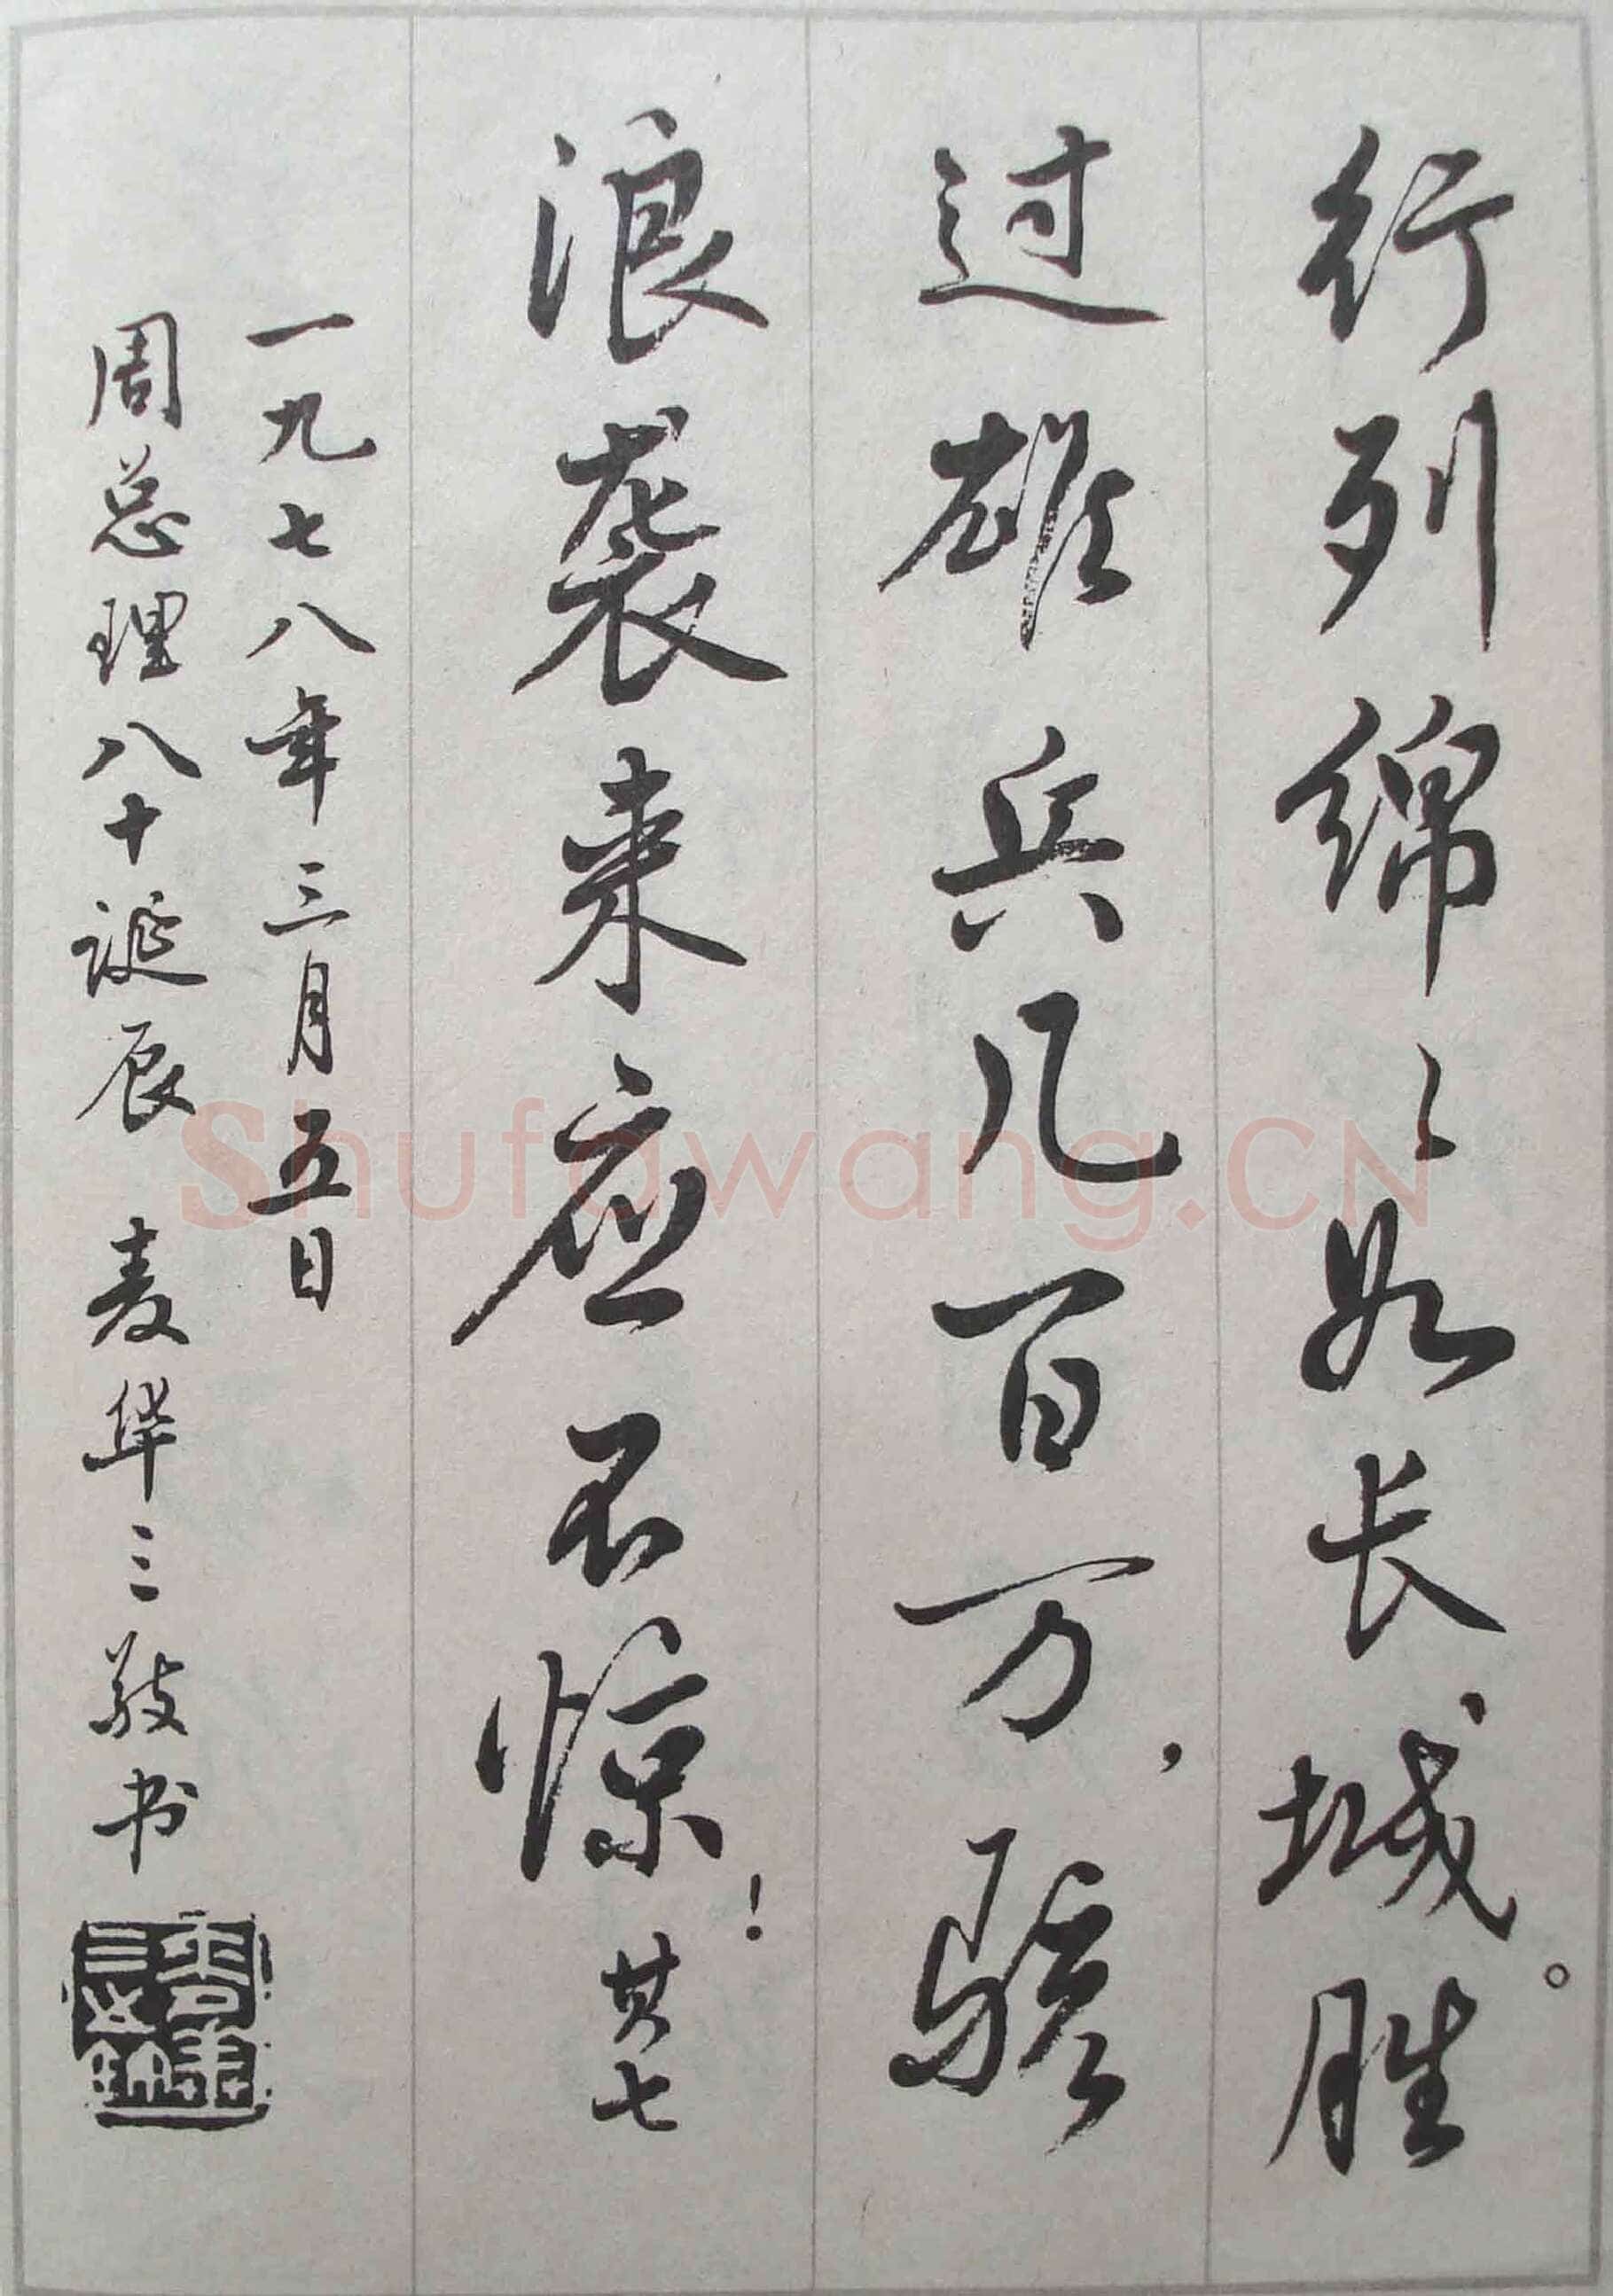 行列绵々如长城。胜
过雄兵几百万，骇
浪袭来应不惊！其七
一九七八年三月五日
周总理八十诞辰 麦华三敬书
Shufawang.CN